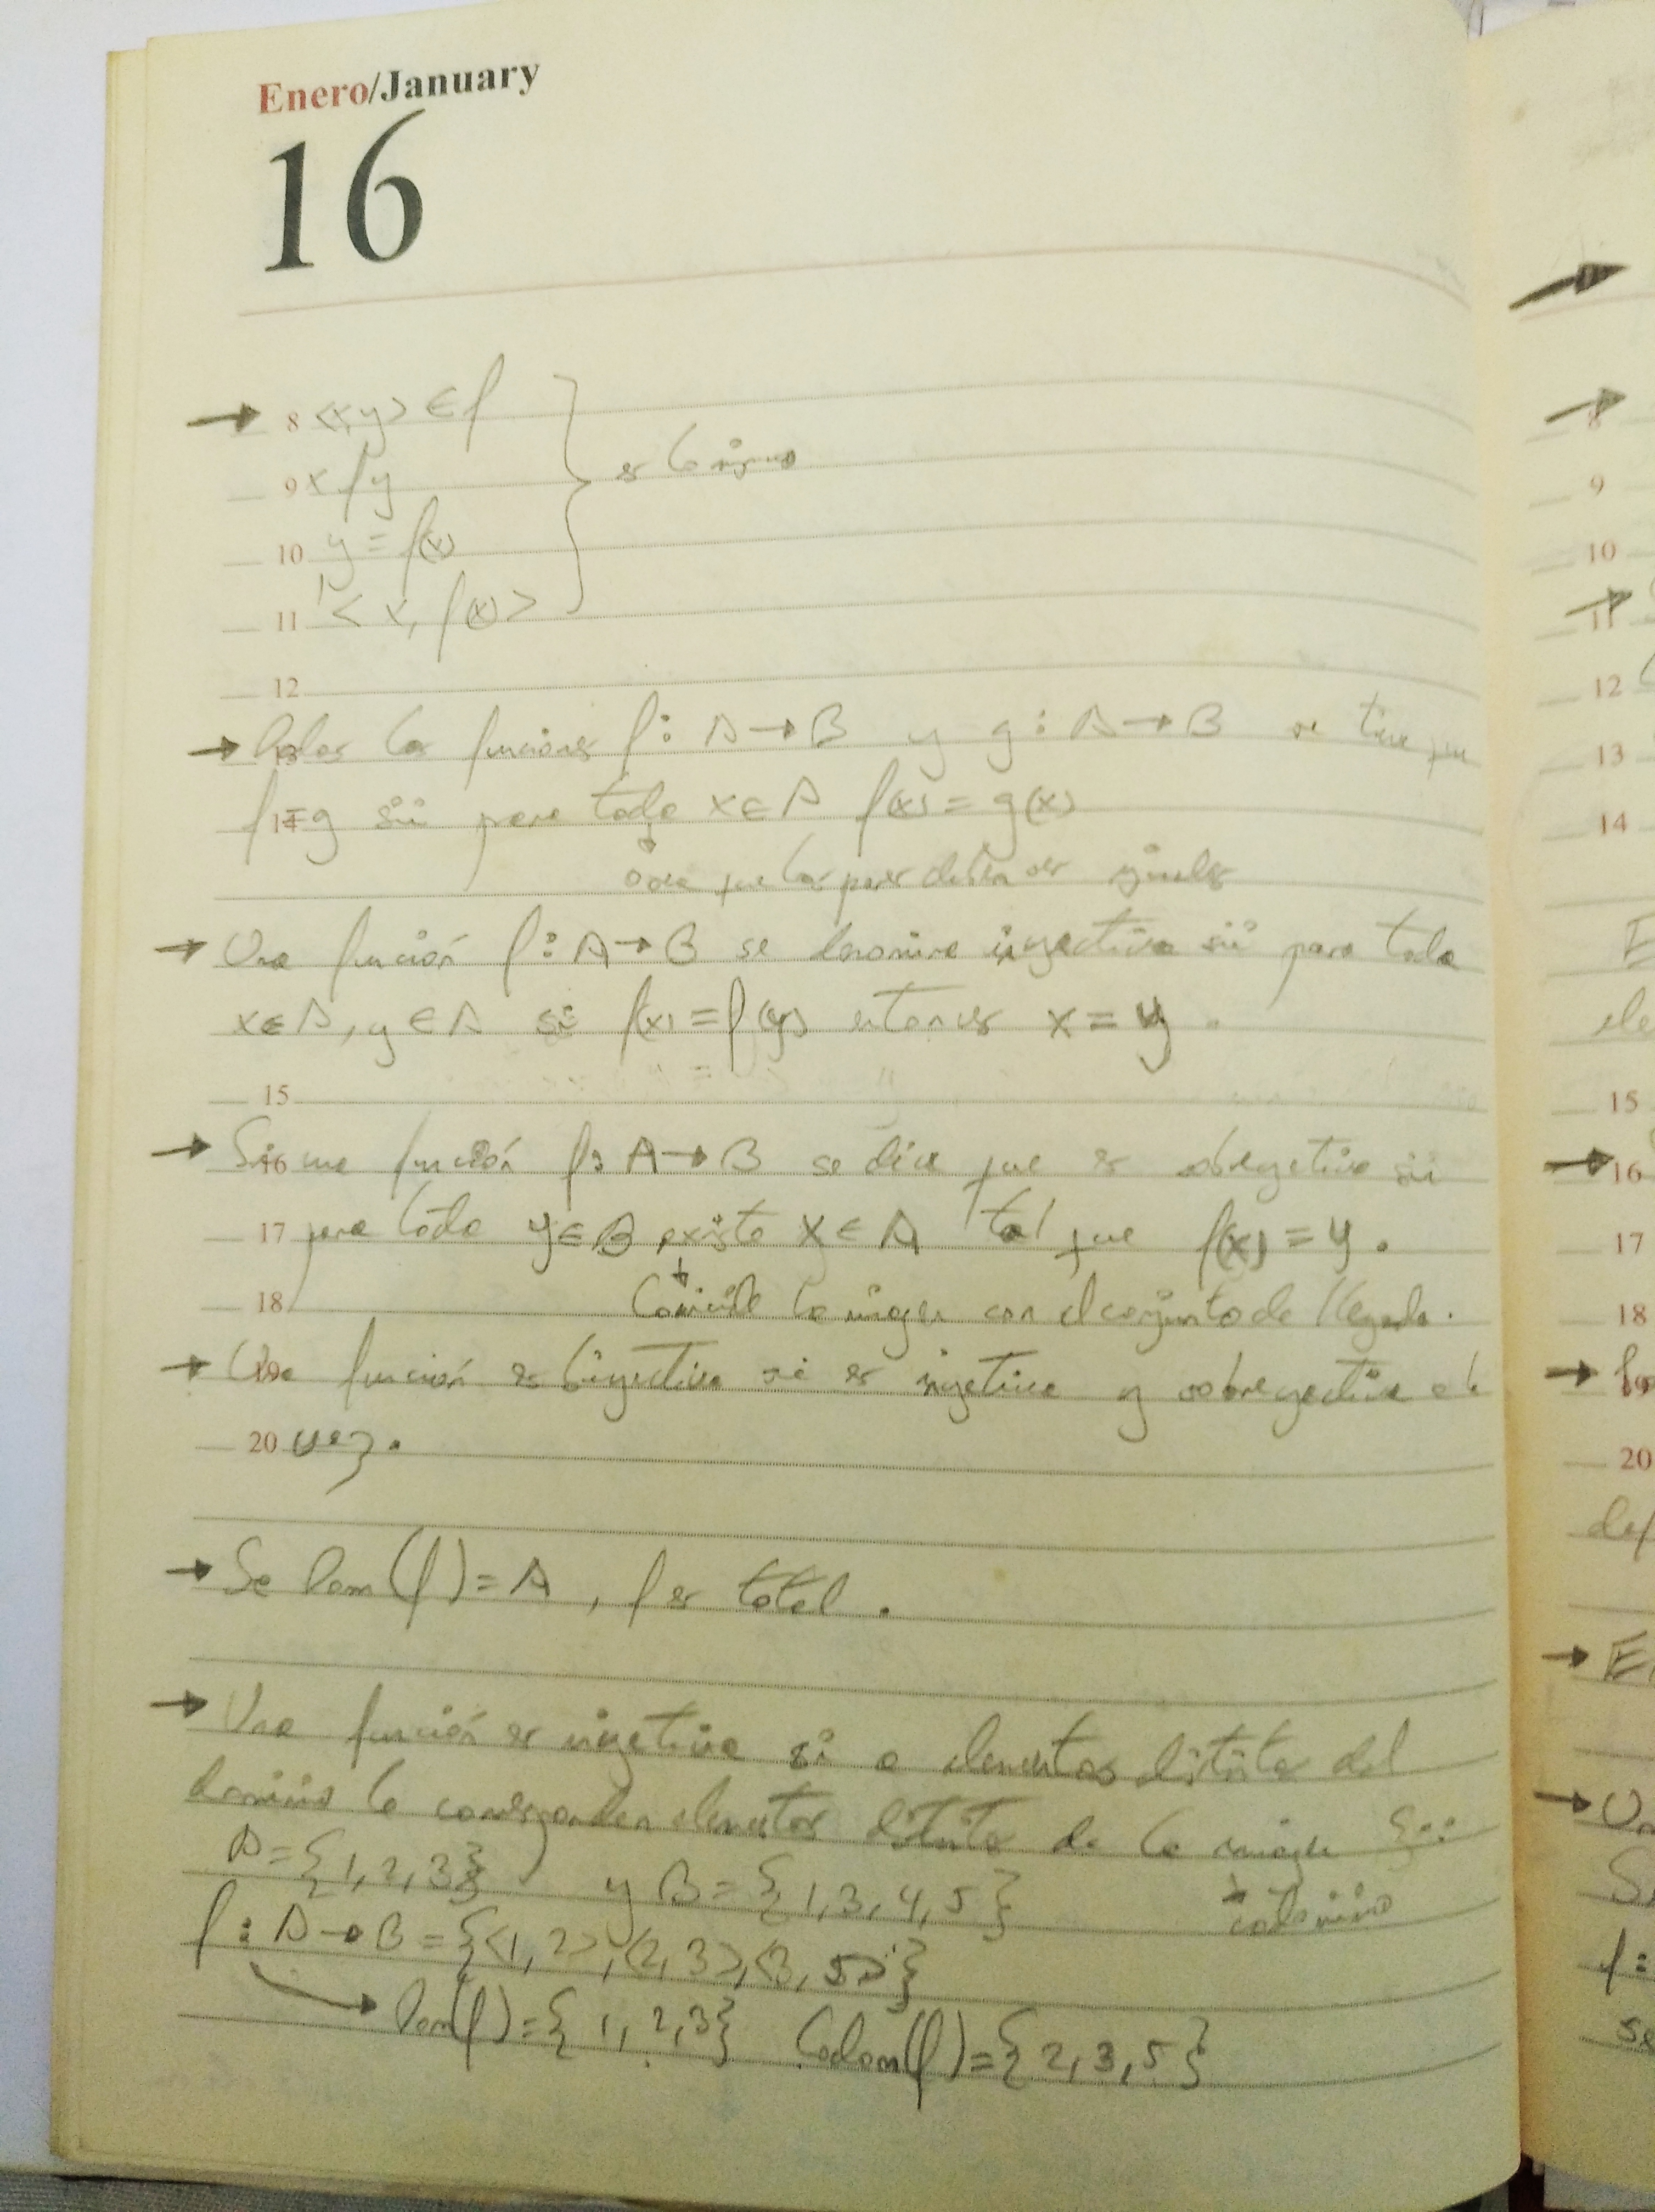 Enero/January
16
→ 8 <x,y> ∈ f
9 x f y
es lo mismo
10 y = f(x)
11 < x, f(x) >
12
→ 13 Dadas las funciones f: A → B y g: A → B se tiene que
14 f = g sii para todo x ∈ A f(x) = g(x)
o sea que los pares deben ser iguales
→ Una función f: A → B se denomina inyectiva sii para todo
x ∈ A, y ∈ A si f(x) = f(y) entonces x = y.
15
→ 16 Si una función f: A → B se dice que es sobreyectiva sii
17 para todo y ∈ B existe x ∈ A tal que f(x) = y.
18 Coincide la imagen con el conjunto de llegada.
→ 19 Una función es biyectiva si es inyectiva y sobreyectiva a la
20 vez.
→ Se Dom(f) = A, f es total.
→ Una función es inyectiva si a elementos distintos del
dominio le corresponden elementos distintos de la imagen Ej:
A = {1, 2, 3} y B = {1, 3, 4, 5}
codominio
f: A → B = {<1, 2>, <2, 3>, <3, 5>}
→ Dom(f) = {1, 2, 3} Codom(f) = {2, 3, 5}
8
9
10
11
12
13
14
15
16
17
18
19
20